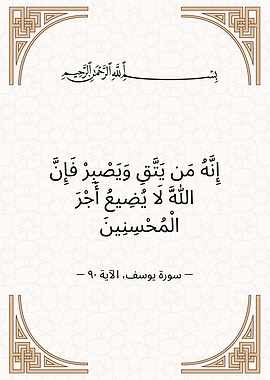 بِسْمِ اللَّهِ الرَّحْمَٰنِ الرَّحِيمِ
إِنَّهُ مَن يَتَّقِ وَيَصْبِرْ فَإِنَّ
اللَّهَ لَا يُضِيعُ أَجْرَ
الْمُحْسِنِينَ
— سورة يوسف، الآية ٩٠ —